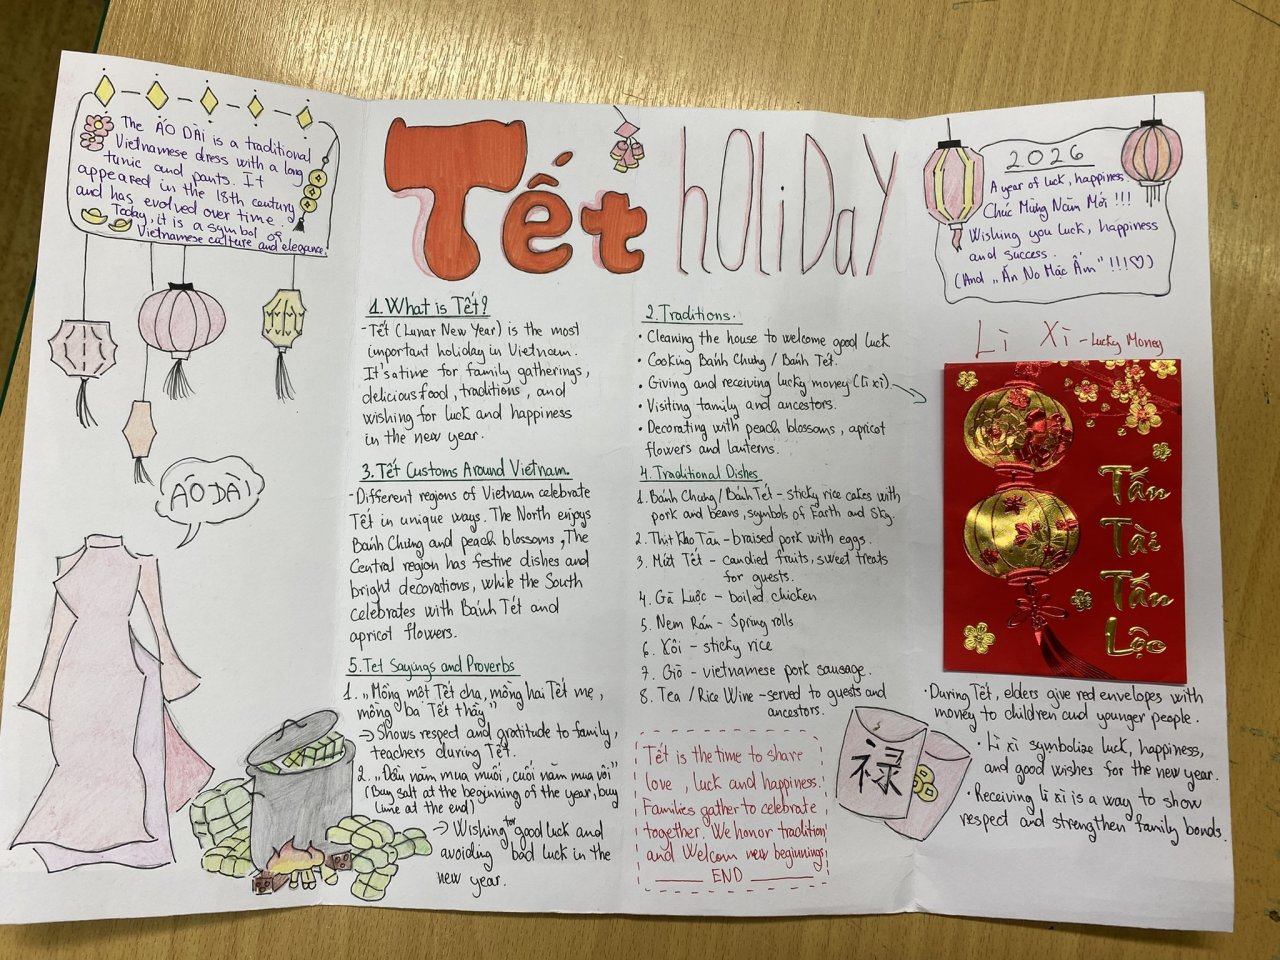 The ÁO DÀI is a traditional
Vietnamese dress with a long
tunic and pants. It
appeared in the 18th century
and has evolved over time.
Today, it is a symbol of
Vietnamese culture and elegance.
ÁO DÀI
Tết hOLiDaY
1. What is Tết?
- Tết (Lunar New Year) is the most
important holiday in Vietnam.
It's a time for family gatherings,
delicious food, traditions, and
wishing for luck and happiness
in the new year.
3. Tết Customs Around Vietnam.
- Different regions of Vietnam celebrate
Tết in unique ways. The North enjoys
Bánh Chưng and peach blossoms, The
Central region has festive dishes and
bright decorations, while the South
celebrates with Bánh Tét and
apricot flowers.
5. Tet Sayings and Proverbs
1. „Mồng một Tết cha, mồng hai Tết mẹ,
mồng ba Tết thầy"
→ Shows respect and gratitude to family,
teachers during Tết.
2. „Đầu năm mua muối, cuối năm mua vôi"
(Buy salt at the beginning of the year, buy
lime at the end)
→ Wishing for good luck and
avoiding bad luck in the
new year.
2. Traditions.
• Cleaning the house to welcome good luck
• Cooking Bánh Chưng / Bánh Tét.
• Giving and receiving lucky money (lì xì).
• Visiting family and ancestors.
• Decorating with peach blossoms, apricot
flowers and lanterns.
4. Traditional Dishes
1. Bánh Chưng / Bánh Tét - sticky rice cakes with
pork and beans, symbols of Earth and Sky.
2. Thịt Kho Tàu - braised pork with eggs.
3. Mứt Tết - candied fruits, sweet treats
for guests.
4. Gà Luộc - boiled chicken
5. Nem Rán - Spring rolls
6. Xôi - sticky rice
7. Giò - vietnamese pork sausage.
8. Tea / Rice Wine - served to guests and
ancestors.
Tết is the time to share
love, luck and happiness.
Families gather to celebrate
together. We honor tradition
and Welcom new beginnings
END
2026
A year of luck, happiness
Chúc Mừng Năm Mới !!!
Wishing you luck, happiness
and success.
(And „Ăn No Mặc Ấm" !!!♡)
Lì Xì - Lucky Money
Tấn
Tài
Tấn
Lộc
• During Tết, elders give red envelopes with
money to children and younger people.
• Lì xì symbolize luck, happiness,
and good wishes for the new year.
• Receiving lì xì is a way to show
respect and strengthen family bonds.
禄